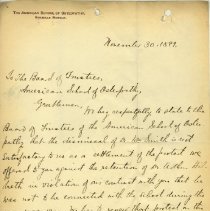 THE AMERICAN SCHOOL OF OSTEOPATHY,
KIRKSVILLE, MISSOURI.
November 30. 1897.
To The Board of Trustees,
American School of Osteopathy,
Gentlemen,
We beg respectfully to state to the
Board of Trustees of the American School of Osteo-
pathy that the dismissal of Dr. Wm Smith is not
satisfactory to us as a settlement of the protest we
offered to you against the retention of Dr.
Smith in violation of our contract with you that he
was not to be connected with the school during the
We to repeat that protest in the